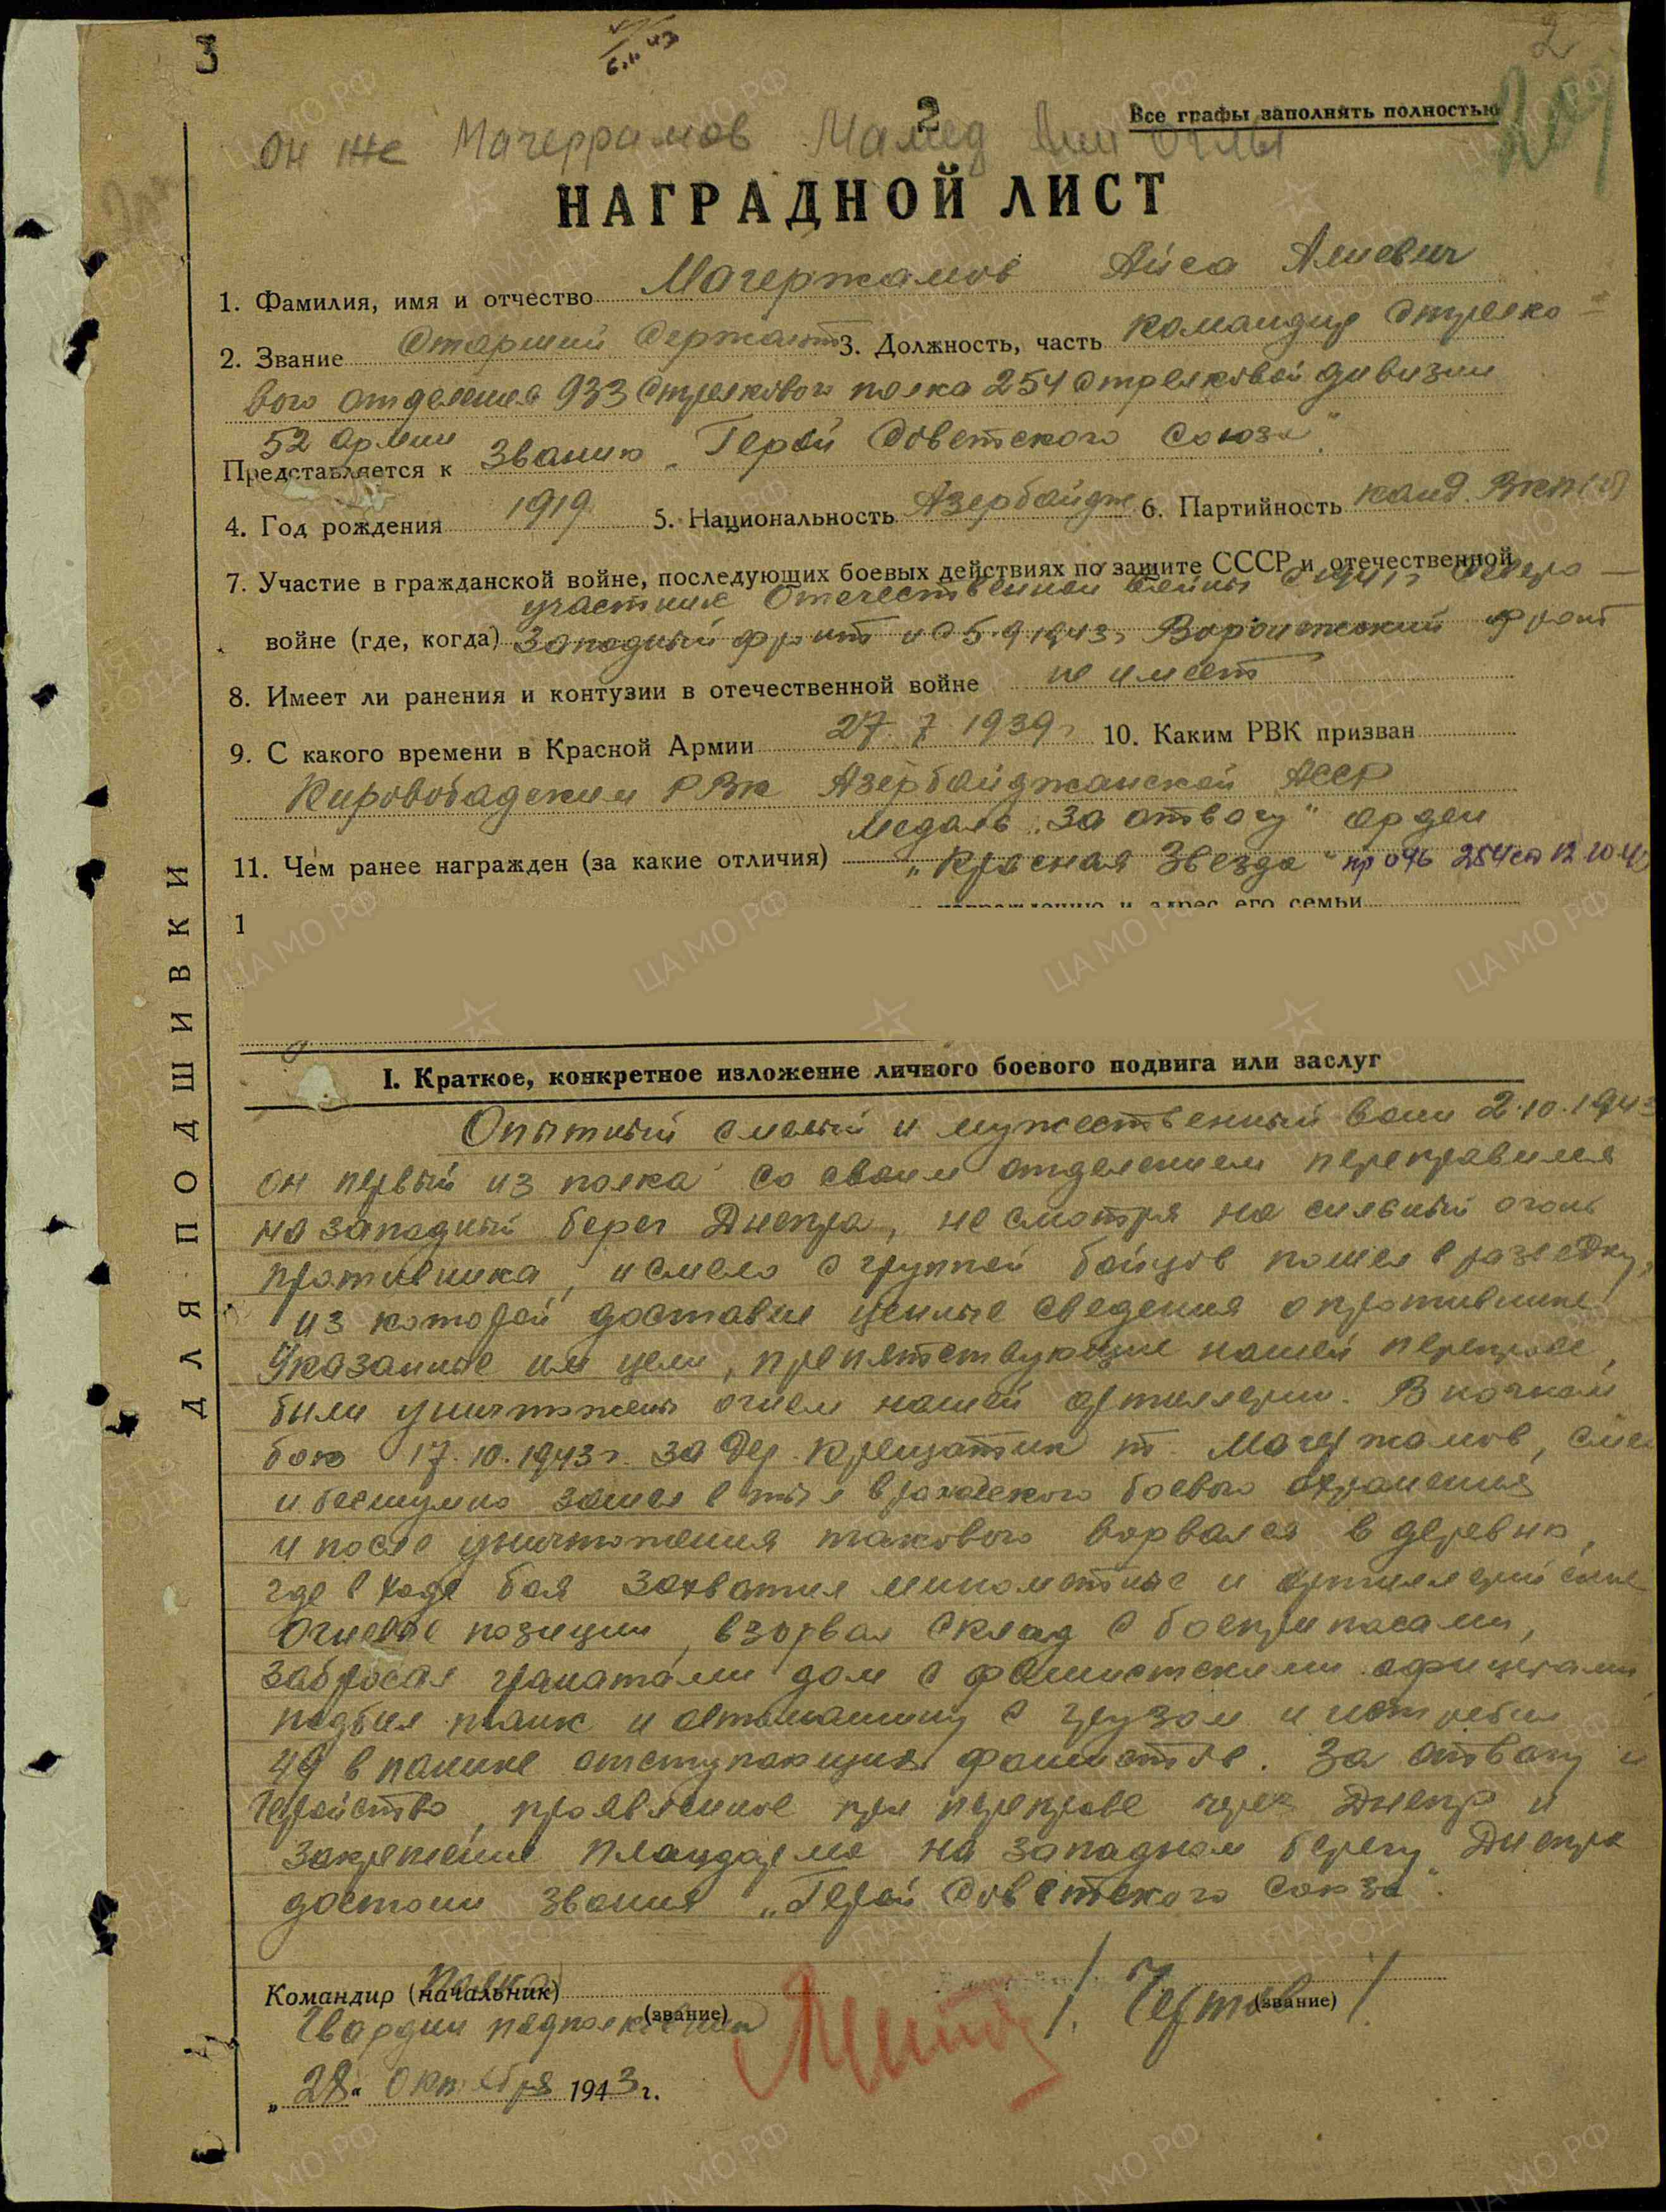 3
2
6.11.43
2
Все графы заполнять полностью
он же Магеррамов Мамед Али Оглы
НАГРАДНОЙ ЛИСТ
1. Фамилия, имя и отчество Магержамов Айса Алиевич
2. Звание Старший Сержант 3. Должность, часть командир стрелко-
вого отделения 933 Стрелкового полка 254 Стрелковой дивизии
52 Армии
Представляется к званию „Герой Советского Союза"
4. Год рождения 1919 5. Национальность Азербайдж 6. Партийность канд. ВКП(б)
7. Участие в гражданской войне, последующих боевых действиях по защите СССР и отечественной
участник Отечественной войны с 1941 г Северо-
войне (где, когда) Западный фронт и с 5.9.1943г Воронежский фронт
8. Имеет ли ранения и контузии в отечественной войне не имеет
9. С какого времени в Красной Армии 27. 7. 1939г 10. Каким РВК призван
Кировобадским РВК Азербайджанской АССР
медаль „За отвагу" орден
11. Чем ранее награжден (за какие отличия) „Красная Звезда" пр 046 254сд 12 10 43
к награждению и адрес его семьи
1
ДЛЯ ПОДШИВКИ
I. Краткое, конкретное изложение личного боевого подвига или заслуг
Опытный смелый и мужественный воин 2.10.1943
он первый из полка со своим отделением переправился
на западный берег Днепра, не смотря на сильный огонь
противника, и смело с группой бойцов пошел в разведку,
из которой доставил ценные сведения о противнике.
Указанные им цели, препятствующие нашей переправе,
были уничтожены огнем нашей артиллерии. В ночном
бою 17.10.1943г. за дер. Крещатик т. Магержамов, смело
и бесшумно зашел в тыл вражеского боевого охранения
и после уничтожения такового ворвался в деревню,
где в ходе боя захватил минометные и артиллерийские
огневые позиции, взорвал склад с боеприпасами,
забросал гранатами дом с фашистскими офицерами
подбил танк и автомашину с грузом и истребил
49 в панике отступающих фашистов. За отвагу и
геройство, проявленное при переправе через Днепр и
закрепление плацдарма на западном берегу Днепра
достоин звания „Герой Советского Союза".
Командир (начальник) полка
(звание)
(звание)
Гвардии подполковник /. Чертов /
„28" октября 1943 г.
ЦА МО РФ
ПАМЯТЬ НАРОДА